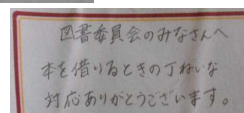 図書委員会のみなさんへ
本を借りるときの丁ねいな
対応ありがとうございます。